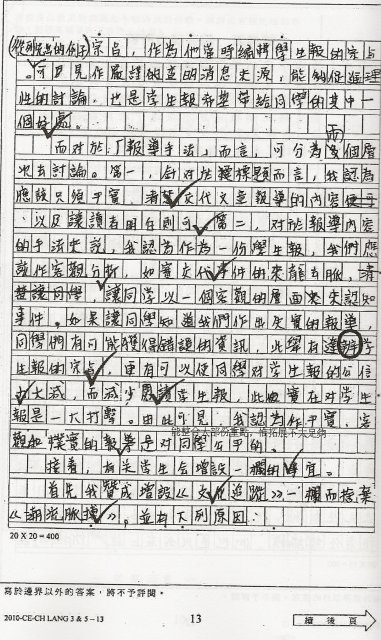 (從列出的例子)宗旨,作為他當時編輯學生報的宗旨
。可見作嚴謹的查明消息來源,能夠促進理
性的討論,也是學生報希望帶給同學的其中一
個好處。
而
而對於「報導手法」而言,可分為多個層
次去討論。第一,針對於獲標題而言,我認為
應該只須平實,清楚交代文章報導的內容便可
,以及讓讀者明白則可。第二,對於報導內容
的手法來說,我認為作為一份學生報,我們應
該作客觀分析,如實交代事件的來龍去脈,清
楚讓同學,讓同學以一個客觀的層面來認知
事件。如果讓同學知道我們作出失實的報導,
同學們有可能獲得錯誤的資訊,此舉有違辦學
生報的宗旨,更有可以使同學對學生報的公信
力大減,而減少閱讀學生報,此舉實在對學生
報是一大打擊。由此可見,我認為作平實,客
觀和樸實的報導是對同學公平的。
能整合大部份重點,惟拓展不大足夠
接着,有關學生會增設一欄的事宜。
首先我贊成增設《文化追蹤》一欄而捨棄
《潮流脈搏》,並有下列原因:
20 X 20 = 400
寫於邊界以外的答案,將不予評閱。
2010-CE-CH LANG 3 & 5 – 13
13
續後頁